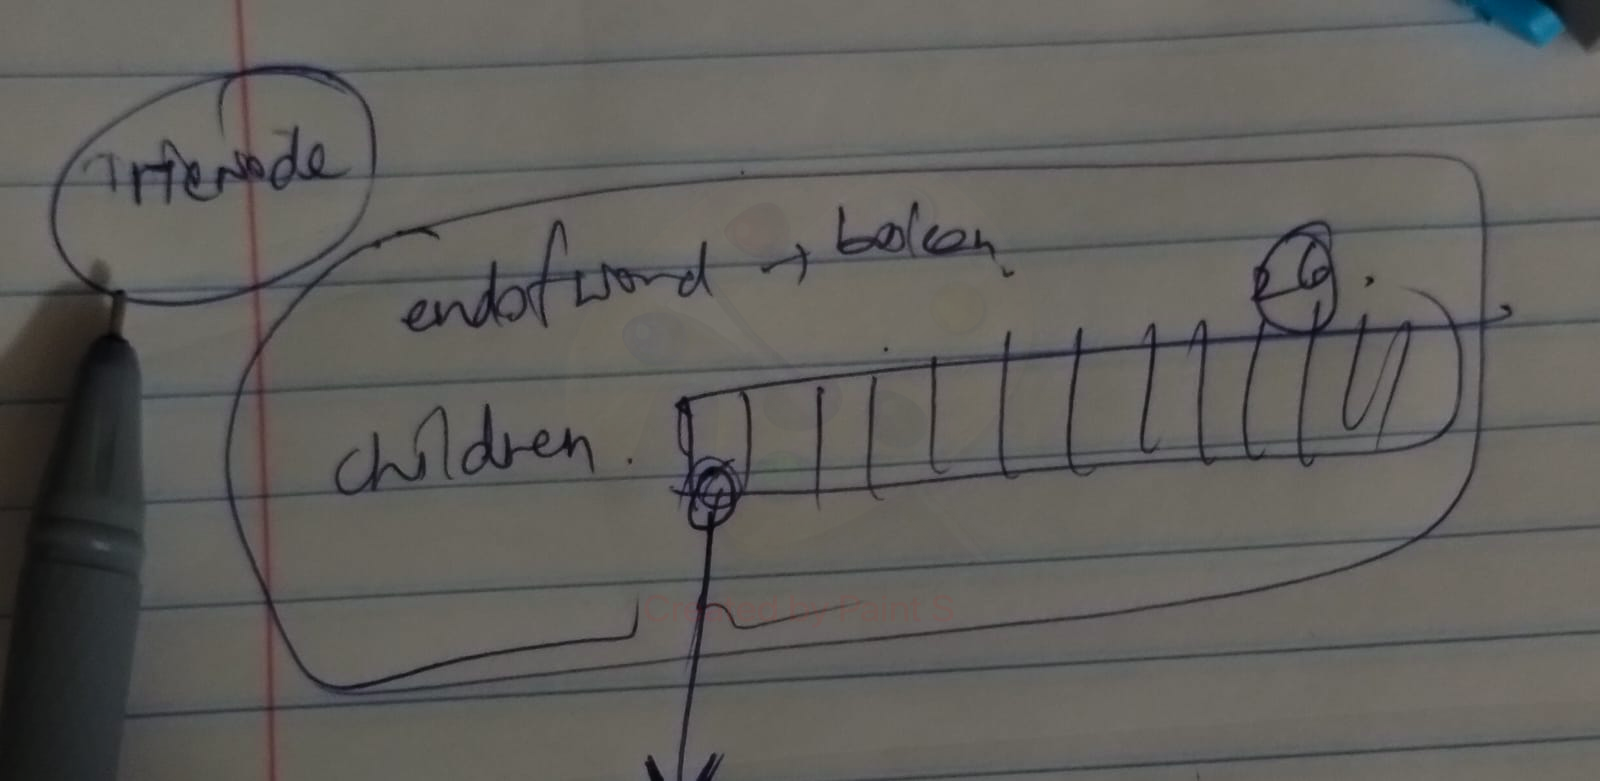 TrieNode
endofword → boolean
26.
children.
Created by Paint S